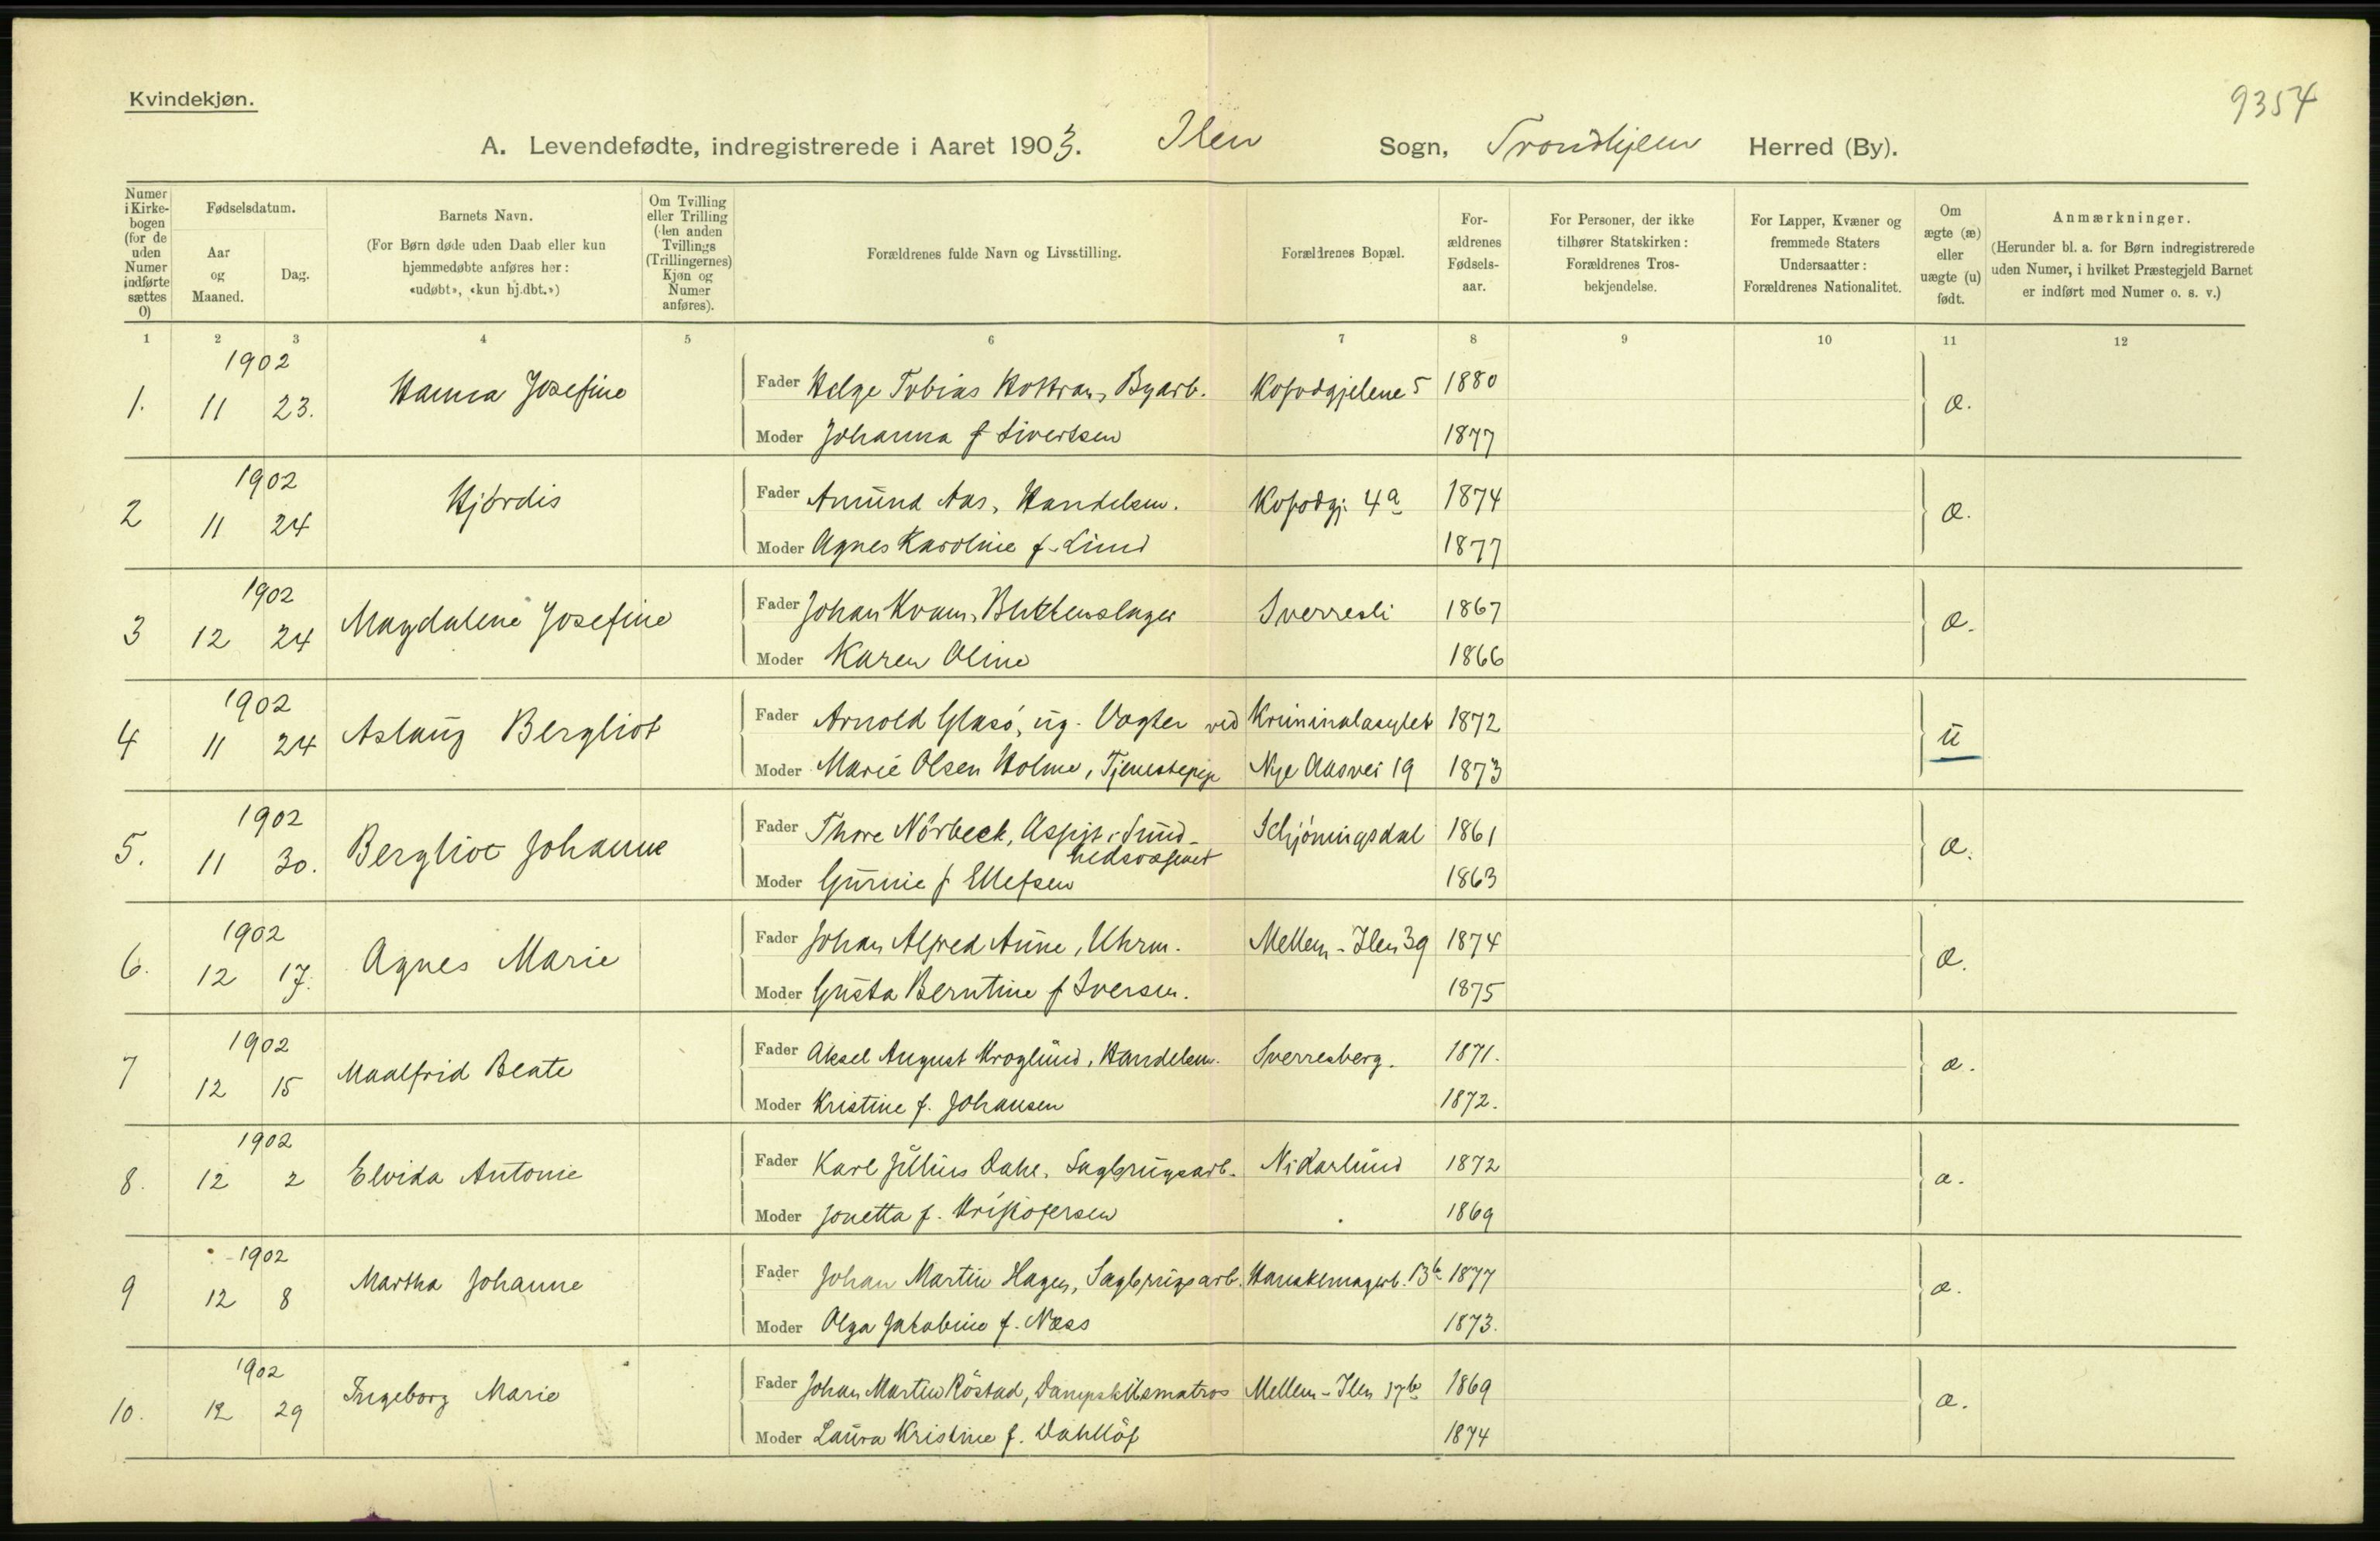 Kvindekjøn.
9354
A. Levendefødte, indregistrerede i Aaret 1903. Ilen Sogn, Trondhjem Herred (By).
Numer i Kirkebogen (for de uden Numer indførte sættes 0)
Fødselsdatum.
Aar og Maaned.
Dag.
Barnets Navn.
(For Børn døde uden Daab eller kun hjemmedøbte anføres her: «udøbt», «kun hj.dbt.»)
Om Tvilling eller Trilling (den anden Tvillings (Trillingernes) Kjøn og Numer anføres).
Forældrenes fulde Navn og Livsstilling.
Forældrenes Bopæl.
Forældrenes Fødselsaar.
For Personer, der ikke tilhører Statskirken: Forældrenes Trosbekjendelse.
For Lapper, Kvæner og fremmede Staters Undersaatter: Forældrenes Nationalitet.
Om ægte (æ) eller uægte (u) født.
Anmærkninger.
(Herunder bl. a. for Børn indregistrerede uden Numer, i hvilket Præstegjeld Barnet er indført med Numer o. s. v.)
1 2 3 4 5 6 7 8 9 10 11 12
1902
1. 11 23. Hanna Josefine Fader Helge Tobias, Byarb. 5 1880 æ.
Moder Johanna f Sivertsen 1877
1902
2 11 24 Hjørdis Fader Amund Aas, Handelsm. 4a 1874 æ.
Moder Agnes Karoline f. Lund 1877
1902
3 12 24 Magdalene Josefine Fader Johan Kvam, Blikkenslager Sverresli 1867 æ.
Moder Karen Oline 1866
1902
4 11 24 Aslaug Bergliot Fader Arnold Glasø, ug. Vogter ved Kriminalasylet 1872 u
Moder Marie Olsen Holme, Tjenestepige Nye Aasvei 19 1873
1902
5. 11 30. Bergliot Johanne Fader Thore Nørbeck, Assist. i Sund- Schjøningsdal 1861 æ.
hedsvæsenet
Moder Gurine f Ellefsen 1863
1902
6. 12 17. Agnes Marie Fader Johan Alfred Aune, Uhrm. Mellem-Ilen 39 1874 æ.
Moder Gusta Berntine f Iversen. 1875
1902
7 12 15 Maalfrid Beate Fader Aksel August Kroglund, Handelsm. Sverresberg. 1871. æ.
Moder Kristine f. Johansen 1872.
1902
8. 12 2 Elvida Antonie Fader Karl Julius Dahl, Sagbrugsarb. Nidarlund 1872 æ.
Moder Jonetta f. Kristofersen 1869
1902
9 12 8 Martha Johanne Fader Johan Martin Hagen, Sagbrugsarb. Hanskemagerb. 13b 1877 æ.
Moder Olga Jakobine f. Næss 1873.
1902
10. 12 29 Ingeborg Marie Fader Johan Martin Røstad, Dampskibsmatros Mellem-Ilen 17b 1869 æ.
Moder Laura Kristine f. Dahlløf 1874